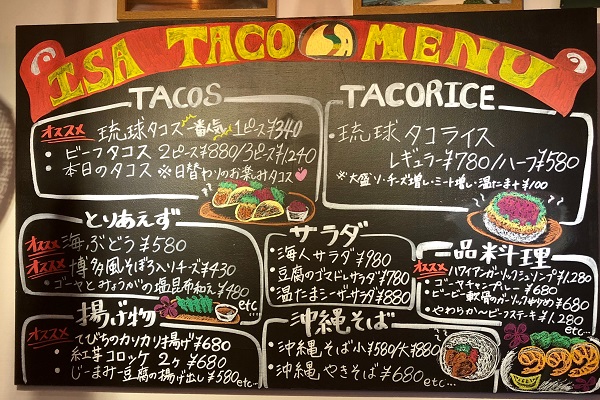 ISA TACO MENU
TACOS
オススメ 琉球タコス 一番人気 1ピース¥340
・ビーフタコス 2ピース¥880/3ピース¥1240
・本日のタコス ※日替わりのお楽しみタコス
TACORICE
・琉球タコライス
レギュラー¥780/ハーフ¥580
※大盛り・チーズ増し・ミート増し・温たま+¥100
とりあえず
オススメ 海ぶどう ¥580
オススメ 博多風そぼろ入りチーズ ¥430
・ゴーヤとみょうがの塩昆布和え ¥480
etc…
サラダ
・海人サラダ ¥980
・豆腐のゴマドレサラダ ¥780
・温たまシーザーサラダ ¥880
一品料理
オススメ ハワイアンガーリックシュリンプ ¥1,280
・ゴーヤチャンプルー ¥680
・ビービー軟骨のガーリックゆり炒め ¥680
・やわらか〜ビーフステーキ ¥1,280
etc…
揚げ物
オススメ てびちのカリカリ揚げ ¥680
・紅芋コロッケ 2ヶ ¥680
・じーまみー豆腐の揚げ出し ¥580 etc…
沖縄そば
・沖縄そば 小¥580/大¥880
・沖縄やきそば ¥680 etc…